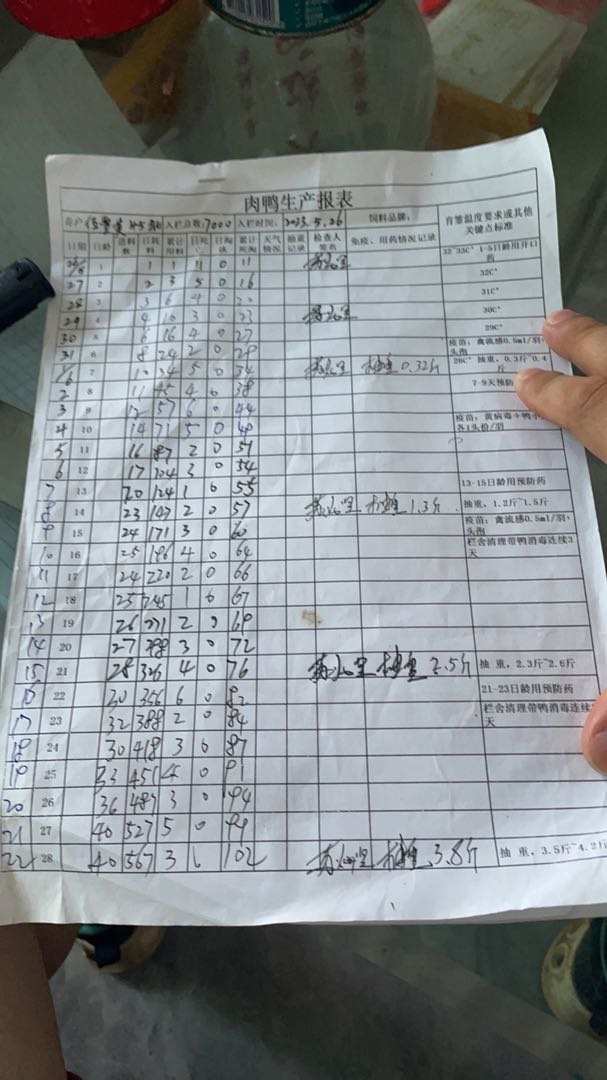 肉鸭生产报表
养户 入栏总数:7000 入栏时间:2023.5.26 饲料品牌: 育雏温度要求或其他关键点标准
日期 日龄 进料数 日耗料 累计用料 日死亡 日淘汰 累计死淘 天气情况 抽重记录 检查人签名 免疫、用药情况记录
26/5 1 1 1 11 0 11 32~33C° 1-5日龄用开口药
27 2 2 3 5 0 16 32C°
28 3 3 6 4 0 20 31C°
29 4 4 10 3 0 23 30C°
30 5 6 16 4 0 27 29C°
31 6 8 24 2 0 29 疫苗:禽流感0.5ml/羽+头孢
1/6 7 10 34 5 0 34 抽重0.32斤 28C° 抽重,0.3斤~0.4斤
2 8 11 45 4 0 38 7-9天预防
3 9 12 57 6 0 44
4 10 14 71 5 0 49 疫苗:黄病毒+鸭小 各1头份/羽
5 11 16 87 2 0 51
6 12 17 104 3 0 54
7 13 20 124 1 0 55 13-15日龄用预防药
8 14 23 147 2 0 57 抽重1.3斤 抽重,1.2斤~1.5斤
9 15 24 171 3 0 60 疫苗:禽流感0.5ml/羽+头孢
10 16 25 196 4 0 64 栏舍清理带鸭消毒连续3天
11 17 24 220 2 0 66
12 18 25 245 1 0 67
13 19 26 271 2 0 69
14 20 27 298 3 0 72
15 21 28 326 4 0 76 抽重2.5斤 抽重,2.3斤~2.6斤
16 22 30 356 6 0 82 21-23日龄用预防药
17 23 32 388 2 0 84 栏舍清理带鸭消毒连续 天
18 24 30 418 3 0 87
19 25 33 451 4 0 91
20 26 36 487 3 0 94
21 27 40 527 5 0 99
22 28 40 567 3 102 抽重3.8斤 抽重,3.5斤~4.2斤